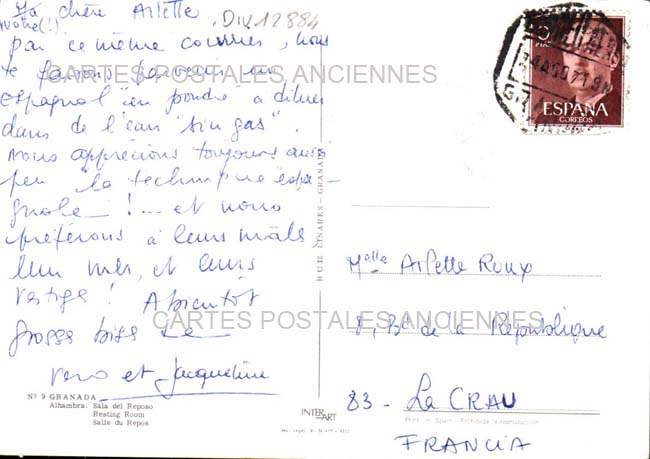 Ma chère Arlette
(votre!) DIV12884
par ce même courrier, nous
te faisons parvenir un
CARTES POSTALES ANCIENNES
espagnol "en poudre" à diluer
dans de l'eau "sin gas".
Nous apprécions toujours aussi
peu la technique espa-
gnole !... et nous
préférons à leurs mâles
leur mer, et leurs
vestiges ! A bientôt
CARTES POSTALES ANCIENNES
grosses bises de
et Jacqueline
Nº 9 GRANADA
Alhambra. Sala del Reposo
Resting Room
Salle du Repos
RUIZ LINARES - GRANADA
INTER ART
PTA
ESPAÑA
CORREOS
Melle Arlette Roux
8, Bd de la République
83 - La CRAU
Print. in Spain - Prohibida la reproducción
FRANCIA